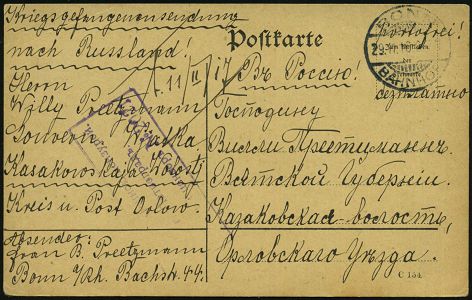 Kriegsgefangenensendung
nach Russland!
Postkarte
portofrei!
29.
BAHNHOF
11/II 17
Въ Россію!
безплатно
Herrn
Willy Preetzmann
Gouvern. Wjatka
Kasakowskaja Wolostj
Kreis u. Post Orlow.
Господину
Вилли Претцманнъ
Вятской Губерніи
Казаковская волость,
Орловскаго Уѣзда.
Absender:
Frau B. Preetzmann
Bonn a/Rh. Bachstr. 44.
C 154